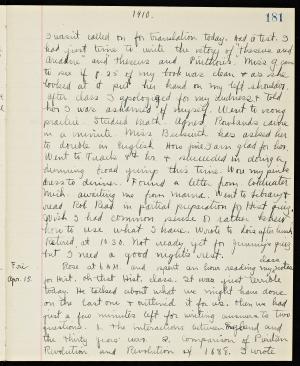 1910. 181
I wasn't called on for translation today. Had a test. I
had just time to write the story of "Theseus and
Ariadne" and Theseus and Pirithous. Miss
to see if p. 25 of my book was clean & as she
looked at it put her hand on my left shoulder.
after class I apologized for my dulness & told
her I was ashamed of myself. Went to song
practice. Studied Math. Agnes Rowlands came
in a minute. Miss Beckwith has asked her
to double in English. How I am glad for her.
Went to Track 4 hr & succeeded in doing a
running good jump this time. Wore my pink
dress to dinner. Found a letter from
Mich. awaiting me from mama. Went to library &
read Red Book in partial preparation for Hist quiz.
Wish I had common sense or rather knew
how to use what I have. Wrote to Lois after lunch
Retired at 10.30. Not ready yet for Jimmy's quiz
but I need a good night's rest.
Fri. Apr. 15.
Rose at 6 A.M. and spent an hour reading my notes
for Hist. Oh that Hist. class. It was just terrible
today. He talked about what we might have done
on the last one & outlined it for us. Then we had
just a few minutes left for writing answers to two
questions. 1. The interactions between England and
the thirty years war. 2. Comparison of Puritan
Revolution and Revolution of 1688. I wrote